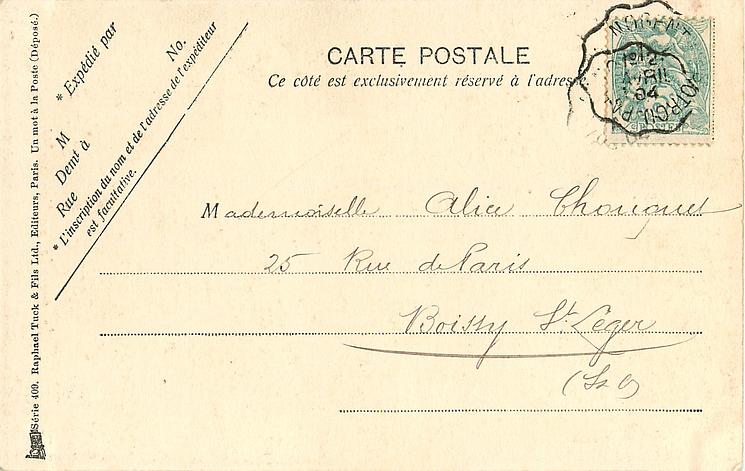 CARTE POSTALE
Ce côté est exclusivement réservé à l'adresse
* Expédié par
No.
M
Demt à
Rue
* L'inscription du nom et de l'adresse de l'expéditeur
est facultative.
Mademoiselle Alice Chouquet
25 Rue de Paris
Boissy St. Léger
(S & O)
AVRIL
04
POSTES
Série 409. Raphael Tuck & Fils Ltd., Editeurs, Paris. Un mot à la Poste (Déposé.)